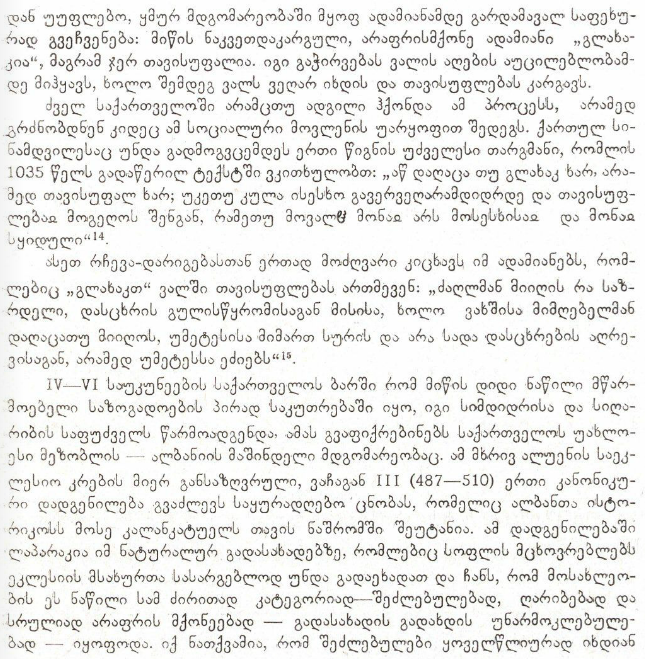 დან უუფლებო, ყმურ მდგომარეობაში მყოფ ადამიანამდე გარდამავალ საფეხუ-
რად გვეჩვენება: მიწის ნაკვეთდაკარგული, არაფრისმქონე ადამიანი „გლახა-
კია“, მაგრამ ჯერ თავისუფალია. იგი გაჭირვებას ვალის აღების აუცილებლობამ-
დე მიჰყავს, ხოლო შემდეგ ვალს ვეღარ იხდის და თავისუფლებას კარგავს.
ძველ საქართველოში არამცთუ ადგილი ჰქონდა ამ პროცესს, არამედ
გრძნობდნენ კიდეც ამ სოციალური მოვლენის უარყოფით შედეგს. ქართულ სი-
ნამდვილესაც უნდა გადმოგვცემდეს ერთი წიგნის უძველესი თარგმანი, რომლის
1035 წელს გადაწერილ ტექსტში ვკითხულობთ: „აწ დაღაცა თუ გლახაკ ხარ, არა-
მედ თავისუფალ ხარ; უკეთუ კულა ისესხო გავერვეღარამდიდრდე და თავისუფ-
ლებაჲ მოგეღოს შენგან, რამეთუ მოვალჱ მონაჲ არს მოსესხისაჲ და მონაჲ
სყიდული“¹⁴.
ასეთ რჩევა-დარიგებასთან ერთად მოძღვარი კიცხავს იმ ადამიანებს, რომ-
ლებიც „გლახაკთ“ ვალში თავისუფლებას ართმევენ: „ძაღლმან მიიღის რა საზ-
რდელი, დასცხრის გულისწყრომისაგან მისისა, ხოლო ვახშისა მიმღებელმან
დაღაცათუ მიიღოს, უმეტესისა მიმართ სურის და არა სადა დასცხრების აღრე-
ვისაგან, არამედ უმეტესსა ეძიებს“¹⁵.
IV—VI საუკუნეების საქართველოს ბარში რომ მიწის დიდი ნაწილი მწარ-
მოებელი საზოგადოების პირად საკუთრებაში იყო, იგი სიმდიდრისა და სიღა-
რიბის საფუძველს წარმოადგენდა, ამას გვაფიქრებინებს საქართველოს უახლო-
ესი მეზობლის — ალბანიის მაშინდელი მდგომარეობაც. ამ მხრივ ალუენის საეკ-
ლესიო კრების მიერ განსაზღვრული, ვაჩაგან III (487—510) ერთი კანონიკუ-
რი დადგენილება გვაძლევს საყურადღებო ცნობას, რომელიც ალბანთა ისტო-
რიკოსს მოსე კალანკატუელს თავის ნაშრომში შეუტანია. ამ დადგენილებაში
ლაპარაკია იმ ნატურალურ გადასახადებზე, რომლებიც სოფლის მცხოვრებლებს
ეკლესიის მსახურთა სასარგებლოდ უნდა გადაეხადათ და ჩანს, რომ მოსახლეო-
ბის ეს ნაწილი სამ ძირითად კატეგორიად—შეძლებულებად, ღარიბებად და
სრულიად არაფრის მქონეებად — გადასახადის გადახდის უნარმოკლებულე-
ბად — იყოფოდა. იქ ნათქვამია, რომ შეძლებულები ყოველწლიურად იხდიან